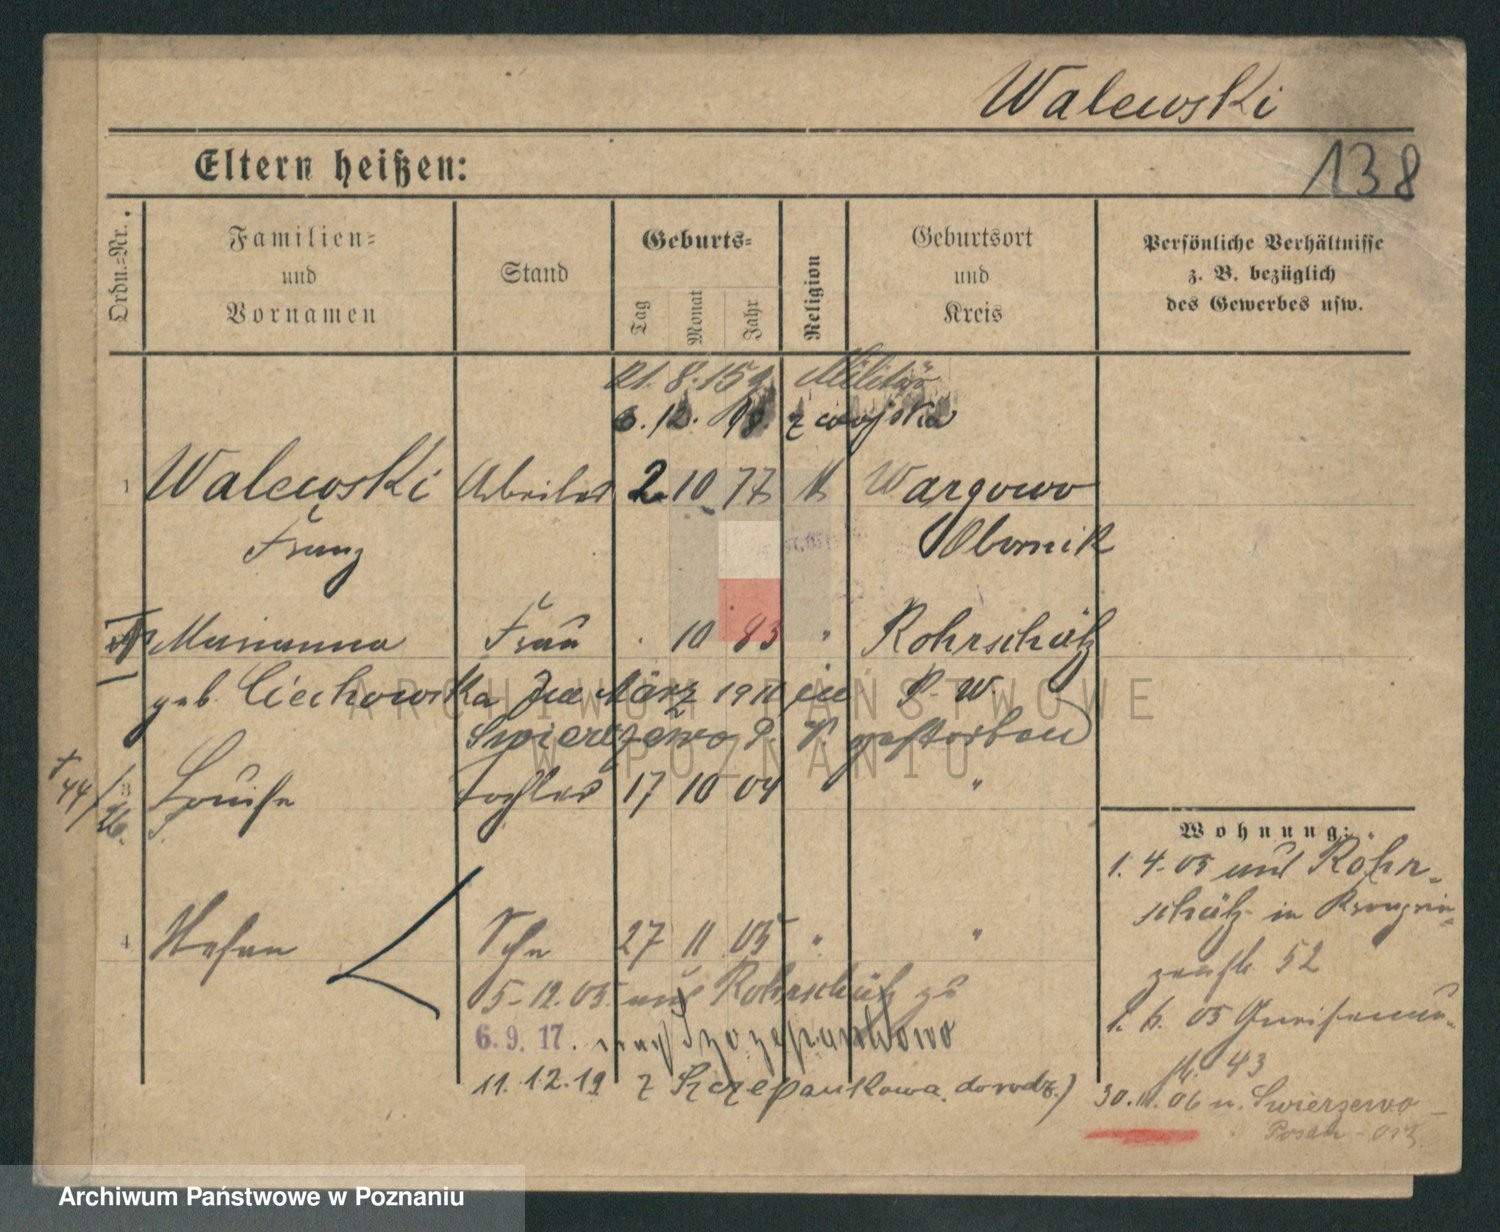 Walewski
138
Eltern heißen:
Ordn.-Nr.
Familien- und Vornamen
Stand
Geburts-
Tag
Monat
Jahr
Religion
Geburtsort und Kreis
Persönliche Verhältnisse z. B. bezüglich des Gewerbes usw.
21. 8. 15 Militär
6. 12. 18. z wojska
1 Walewski Arbeiter 2 10 77 k Wargowo
Franz Obornik
Marianna Frau 10 83 " Rohrschütz
geb. Ciechowska Im März 1910 in P. W.
Swierczewo P. W. gestorben
† 44/26.
3 Louise Tochter 17 10 04 "
4 Stefan Sohn 27 11 05 " "
5-12.05. aus Rohrschütz zu
6. 9. 17. nach Szczepankowo
11. 12. 19 z Szczepankowa. do rodz.)
Wohnung:
1. 4. 05 aus Rohr-
schütz in Kronprin-
zenstr. 52
1. 6. 05 Gneisenau-
str. 43
30. 11. 06 n. Swierzewo
Posen-Ost
ARCHIWUM PAŃSTWOWE
W POZNANIU
Archiwum Państwowe w Poznaniu